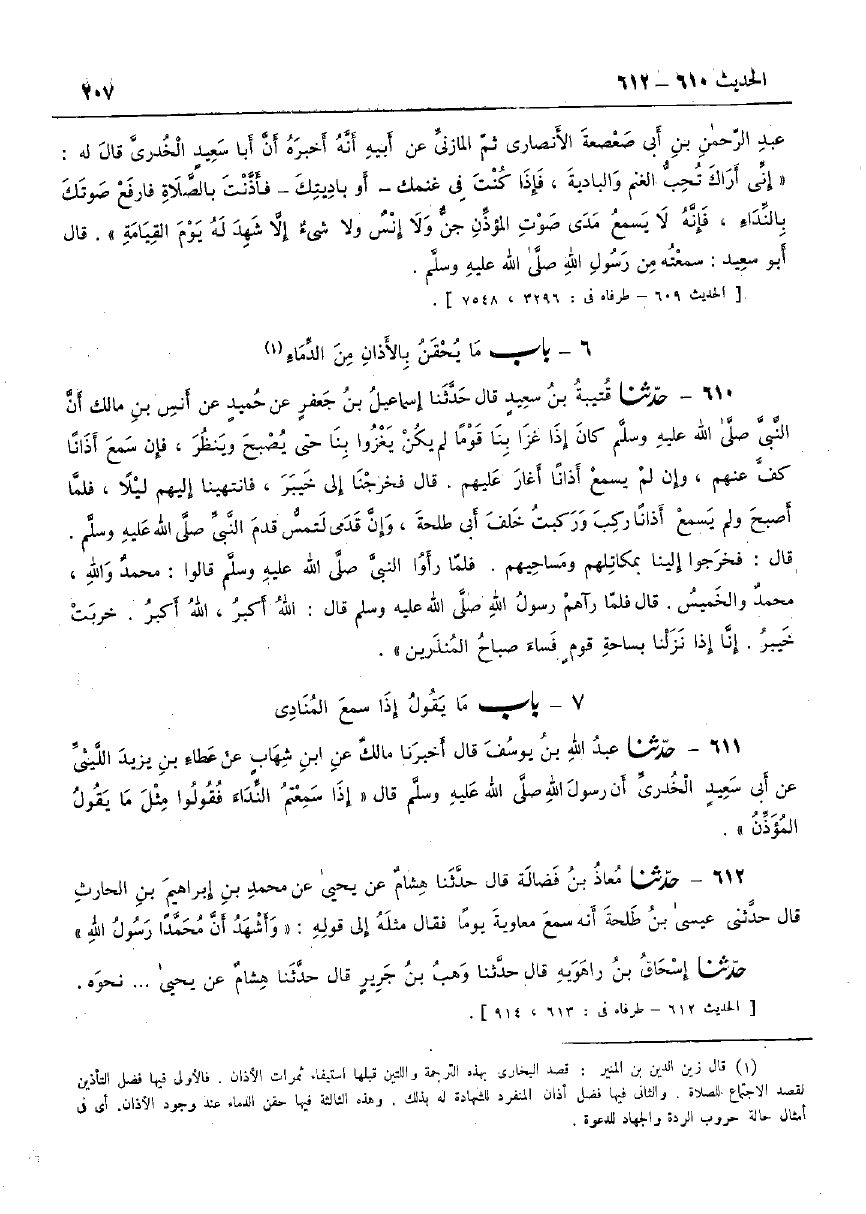 الحديث ٦١٠ – ٦١٢
٢٠٧
عبدِ الرَّحمٰنِ بنِ أبى صَعْصعةَ الأنصارى ثمّ المازنىِّ عن أبيهِ أنَّهُ أخبرَهُ أنَّ أبا سَعيدٍ الْخُدرىَّ قالَ له :
« إنِّى أَرَاكَ تُحِبُّ الغنم وَالبادية ، فَإذَا كُنْتَ فى غنمك – أو بادِيتِكَ – فأذَّنْتَ بالصَّلَاةِ فارفَعْ صَوتَكَ
بِالنِّدَاءِ ، فَإنَّهُ لَا يَسمعُ مَدَى صَوْتِ المؤذِّنِ جنٌّ وَلَا إنْسٌ ولا شىءٌ إلَّا شَهِدَ لَهُ يَوْمَ القِيَامَةِ » . قال
أبو سعِيد : سمعْتُه مِن رَسُولِ اللهِ صلَّى الله عليهِ وسلَّم .
[ الحديث ٦٠٩ – طرفاه فى : ٣٢٩٦ ، ٧٥٤٨ ] .
٦ – باب مَا يُحْقَنُ بِالأَذانِ مِنَ الدِّمَاءِ (١)
٦١٠ – حدّثنا قُتيبةُ بنُ سعيدٍ قال حَدَّثَنا إسماعيلُ بنُ جَعفرٍ عن حُميدٍ عن أنَسِ بنِ مالك أنَّ
النَّبىَّ صلَّى الله عليهِ وسلَّم كانَ إذَا غزَا بِنَا قَوْمًا لم يكُنْ يَغْزُوا بِنَا حتى يُصْبحَ ويَنظُرَ ، فإن سَمعَ أذَانًا
كفَّ عنهم ، وإن لمْ يسمعْ أذانًا أغارَ عَليهم . قال فخرجْنا إلى خَيبَرَ ، فانتهينا إليهم ليْلًا ، فلمَّا
أصبحَ ولم يَسمعْ أذانًا رَكِبَ وَرَكبتُ خَلفَ أبى طلحة ، وَإنَّ قَدَمى لَتمسُّ قدمَ النَّبىِّ صلَّى الله عَليهِ وسلَّم .
قال : فخرَجوا إلينا بمكاتِلهم ومَساحِيهم . فلمَّا رأوُا النبىَّ صلَّى الله عليهِ وسلَّم قالوا : محمدٌ وَاللهِ ،
محمدٌ والخَميسُ . قال فلمَّا رآهمْ رسولُ اللهِ صلَّى الله عليه وسلم قال : اللهُ أكبرُ ، اللهُ أكبرُ . خربَتْ
خَيبرُ . إنَّا إذا نَزَلْنا بساحةِ قومٍ فَساءَ صباحُ المُنذَرين » .
٧ – باب مَا يَقُولُ إذَا سمعَ المُنَادِى
٦١١ – حدّثنا عبدُ اللهِ بنُ يوسُفَ قال أخبرَنا مالكٌ عنِ ابنِ شِهَابٍ عنْ عَطاءِ بنِ يزيدَ اللَّيثىِّ
عن أبى سَعِيدٍ الْخُدرىِّ أن رسولَ اللهِ صلَّى الله عَليهِ وسلَّم قال « إذَا سَمِعْتمُ النِّدَاءَ فَقُولُوا مِثْلَ مَا يَقُولُ
المُؤَذِّنُ » .
٦١٢ – حدّثنا مُعاذُ بنُ فَضالَة قال حدَّثَنا هِشامٌ عن يحيىٰ عن محمدِ بنِ إبراهيمَ بنِ الحارثِ
قال حدَّثنى عيسىٰ بنُ طَلحةَ أنه سمعَ معاويةَ يومًا فقال مثلَهُ إلى قولِهِ : « وَأَشْهَدُ أنَّ مُحَمَّدًا رَسُولُ اللهِ »
حدّثنا إسْحَاقُ بنُ راهَوَيهِ قال حدَّثَنا وَهبُ بنُ جَريرٍ قال حدَّثَنا هِشامٌ عن يحيىٰ ... نحوَه .
[ الحديث ٦١٢ – طرفاه فى : ٦١٣ ، ٩١٤ ] .
(١) قال زين الدين بن المنير : قصد البخارى بهذه الترجمة واللتين قبلها استيفاء ثمرات الأذان . فالأولى فيها فضل التأذين
لقصد الاجتماع للصلاة . والثانى فيها فضل أذان المنفرد للشهادة له بذلك . وهذه الثالثة فيها حقن الدماء عند وجود الأذان. أى فى
أمثال حالة حروب الردة والجهاد للدعوة .